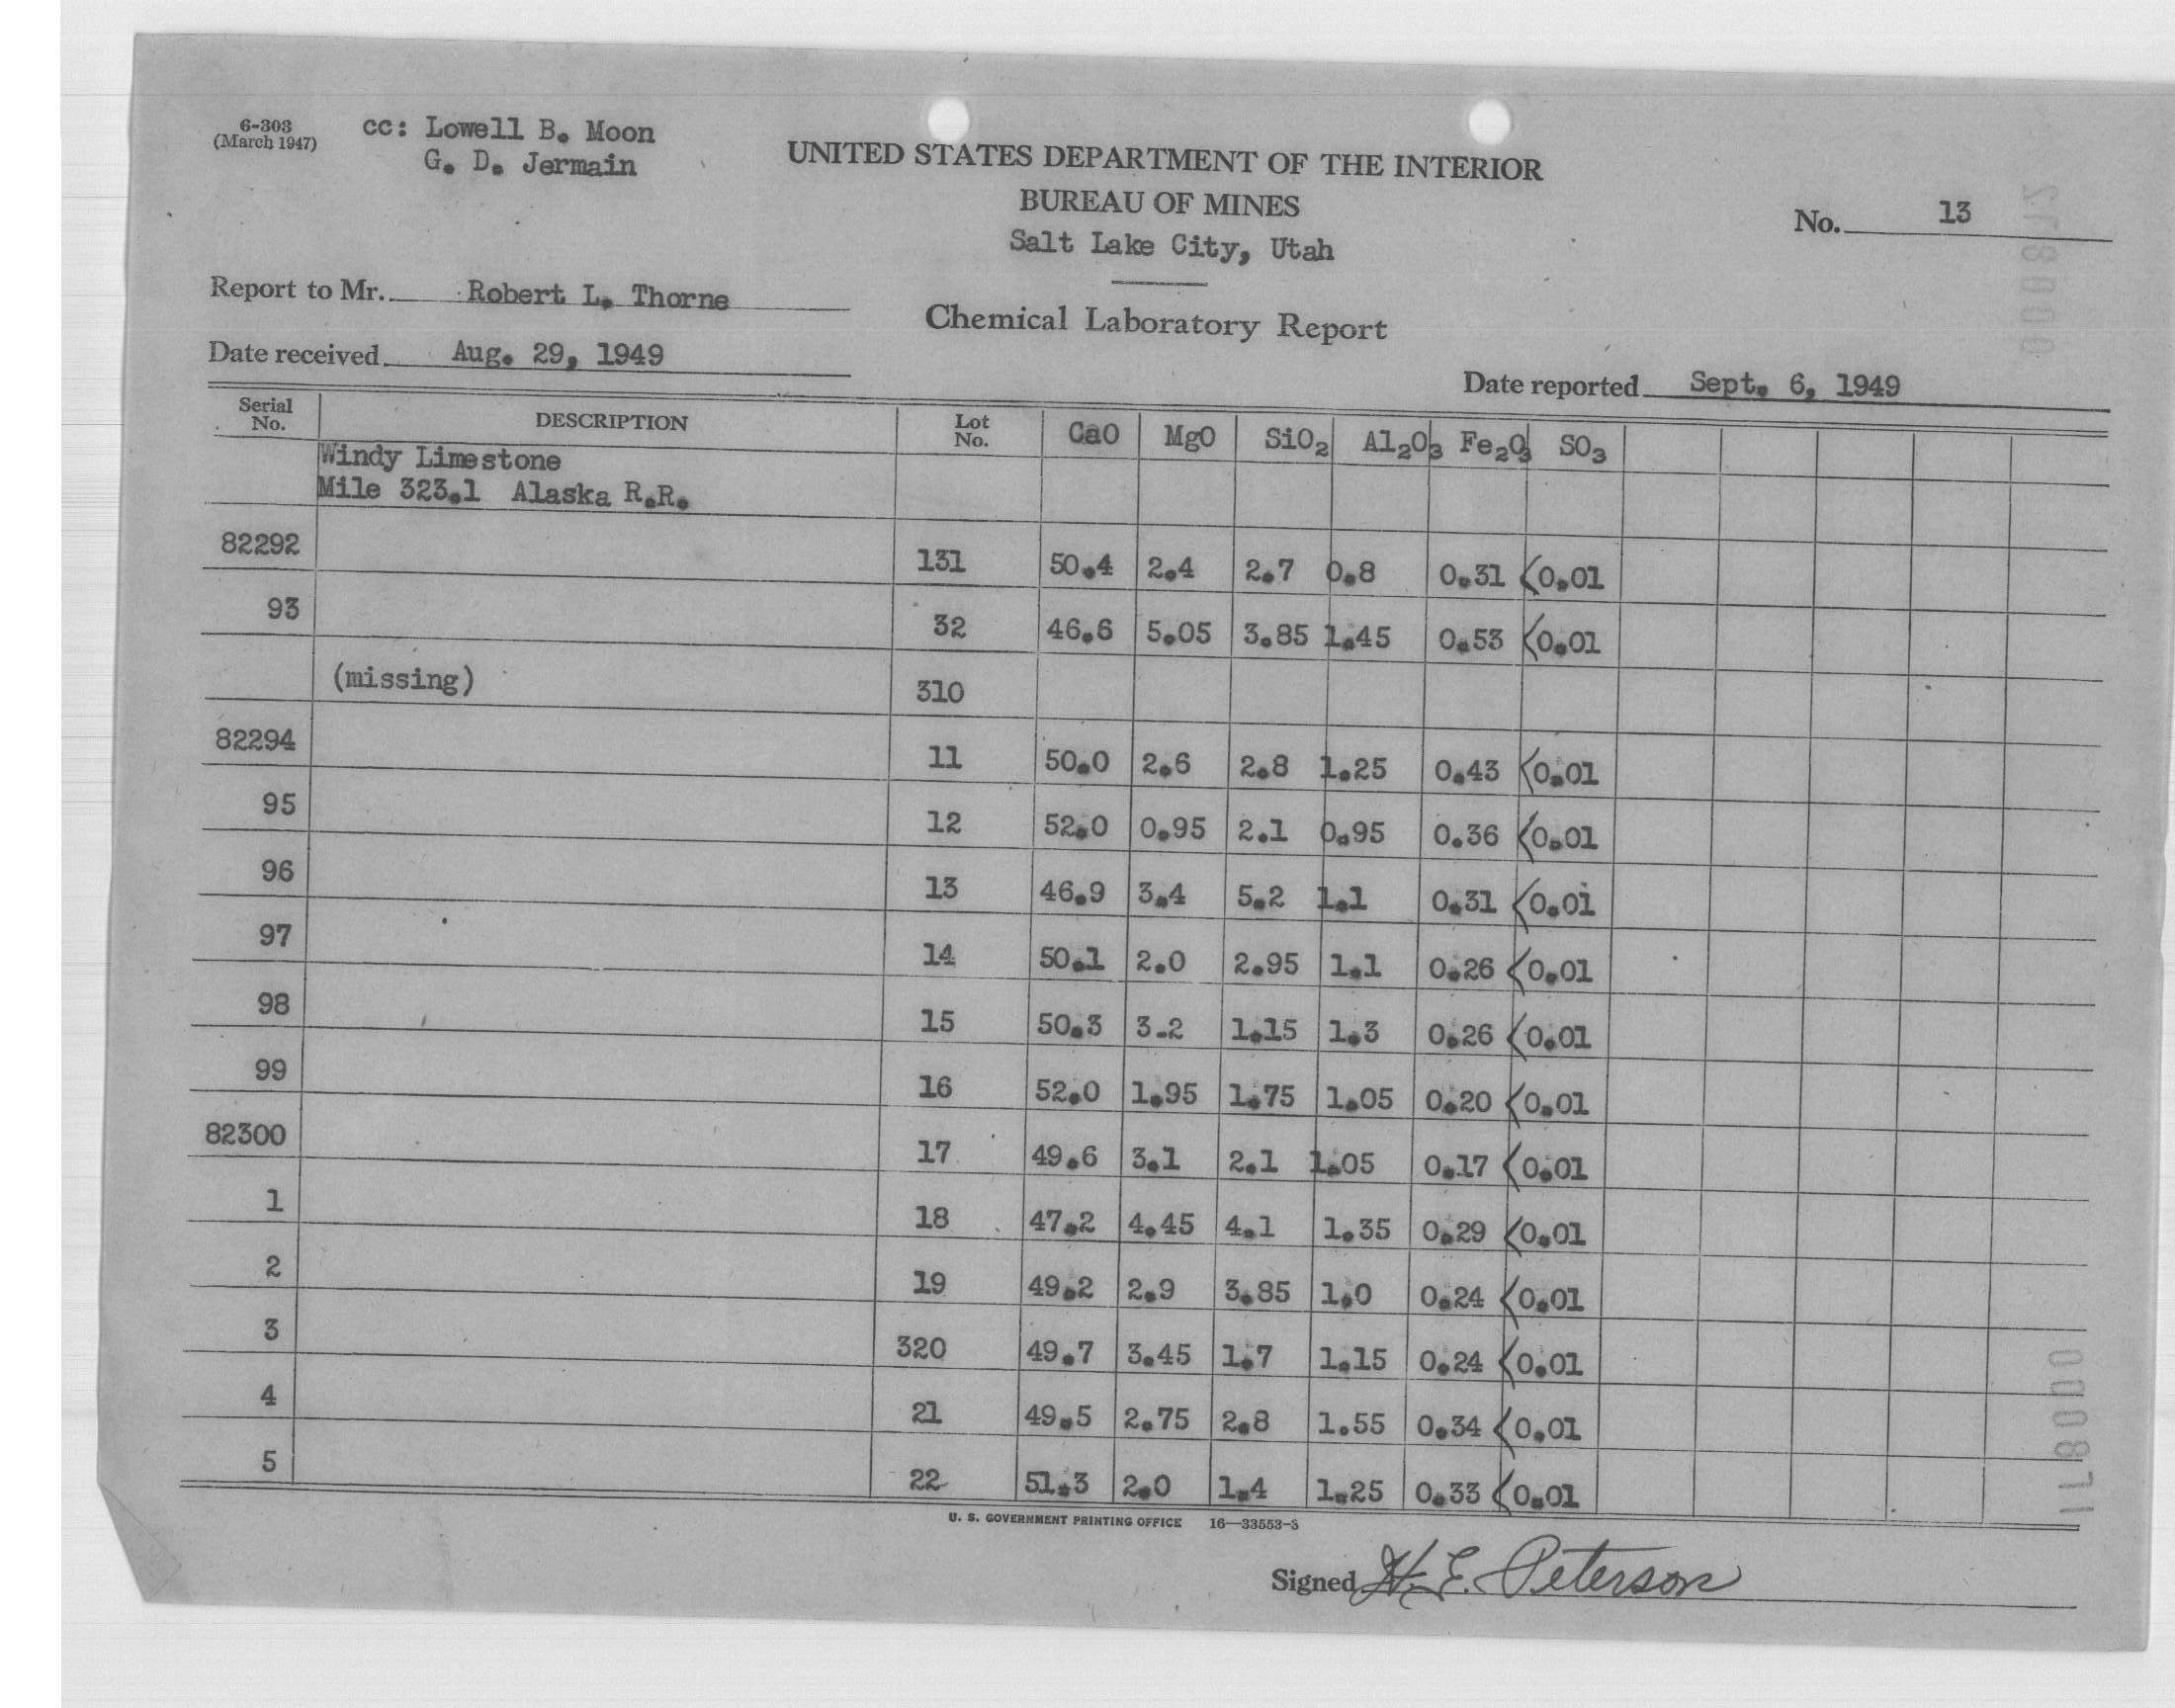 6-303
(March 1947)
cc: Lowell B. Moon
G. D. Jermain
UNITED STATES DEPARTMENT OF THE INTERIOR
BUREAU OF MINES
Salt Lake City, Utah
No. 13
Report to Mr. Robert L. Thorne
Chemical Laboratory Report
Date received Aug. 29, 1949
Date reported Sept. 6, 1949
Serial No. DESCRIPTION Lot No. CaO MgO SiO2 Al2O3 Fe2O3 SO3
Windy Limestone
Mile 323.1 Alaska R.R.
82292 131 50.4 2.4 2.7 0.8 0.31 <0.01
93 32 46.6 5.05 3.85 1.45 0.53 <0.01
(missing) 310
82294 11 50.0 2.6 2.8 1.25 0.43 <0.01
95 12 52.0 0.95 2.1 0.95 0.36 <0.01
96 13 46.9 3.4 5.2 1.1 0.31 <0.01
97 14 50.1 2.0 2.95 1.1 0.26 <0.01
98 15 50.3 3.2 1.15 1.3 0.26 <0.01
99 16 52.0 1.95 1.75 1.05 0.20 <0.01
82300 17 49.6 3.1 2.1 1.05 0.17 <0.01
1 18 47.2 4.45 4.1 1.35 0.29 <0.01
2 19 49.2 2.9 3.85 1.0 0.24 <0.01
3 320 49.7 3.45 1.7 1.15 0.24 <0.01
4 21 49.5 2.75 2.8 1.55 0.34 <0.01
5 22 51.3 2.0 1.4 1.25 0.33 <0.01
U. S. GOVERNMENT PRINTING OFFICE 16—33553-3
Signed H. E. Peterson